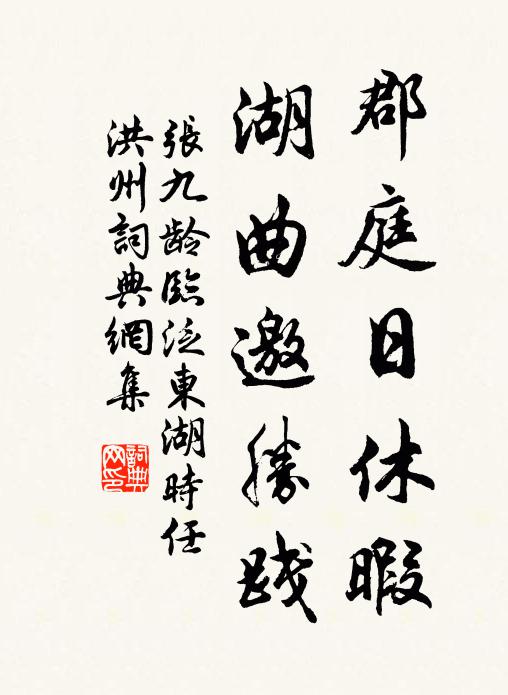 郡庭日休暇
湖曲邀勝踐
張九齡臨泛東湖時任
洪州詞典網集
詞典网印